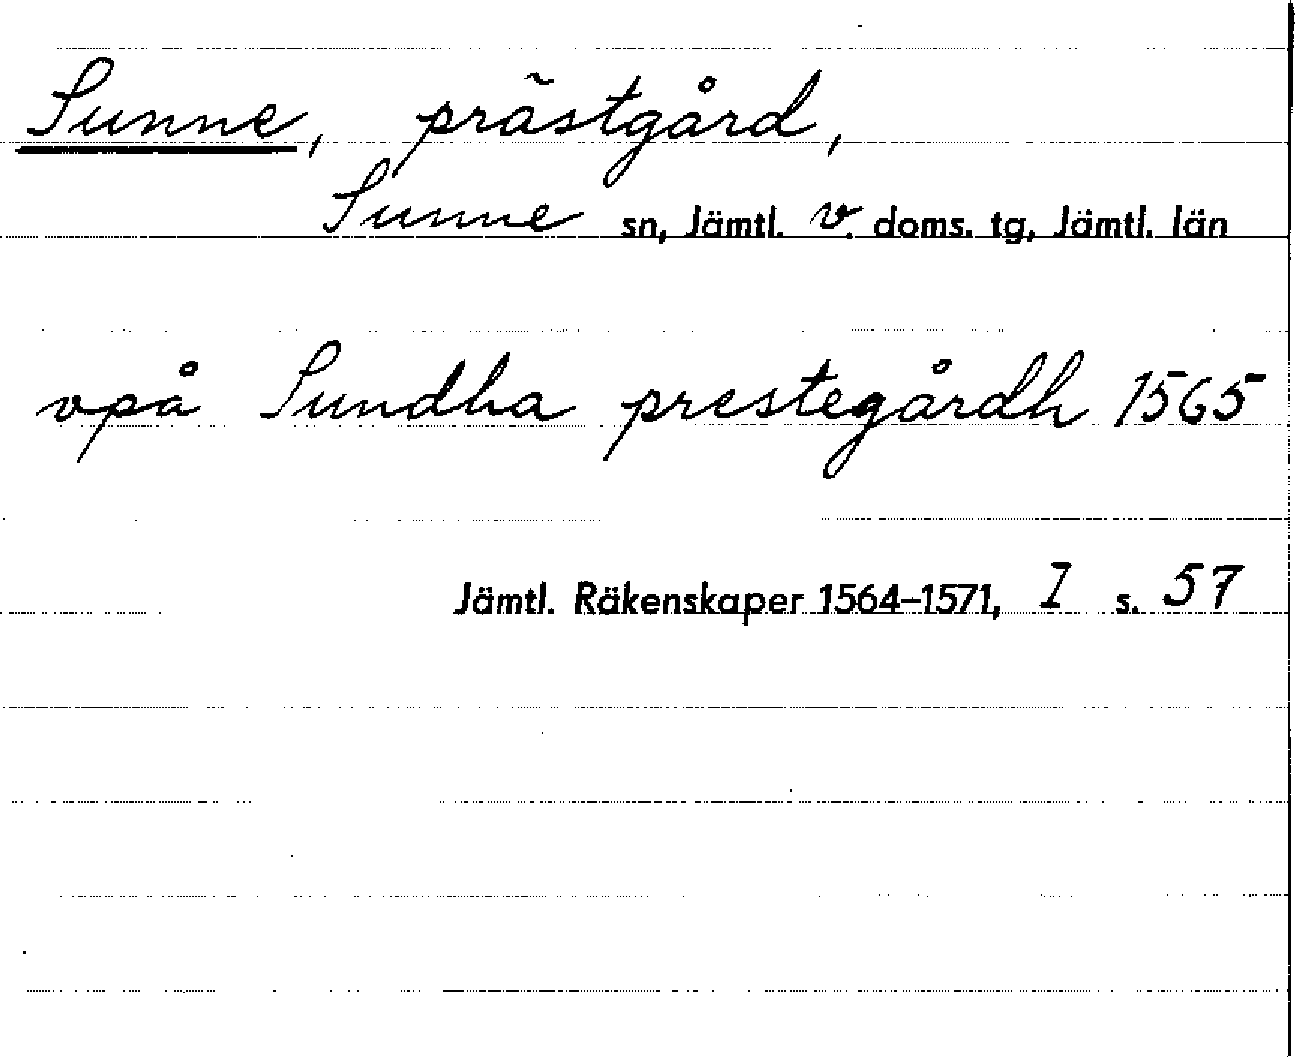 Sunne, prästgård,
Sunne sn, Jämtl. v. doms. tg, Jämtl. län
vpå Sundha prestegårdh 1565
Jämtl. Räkenskaper 1564-1571, I s. 57